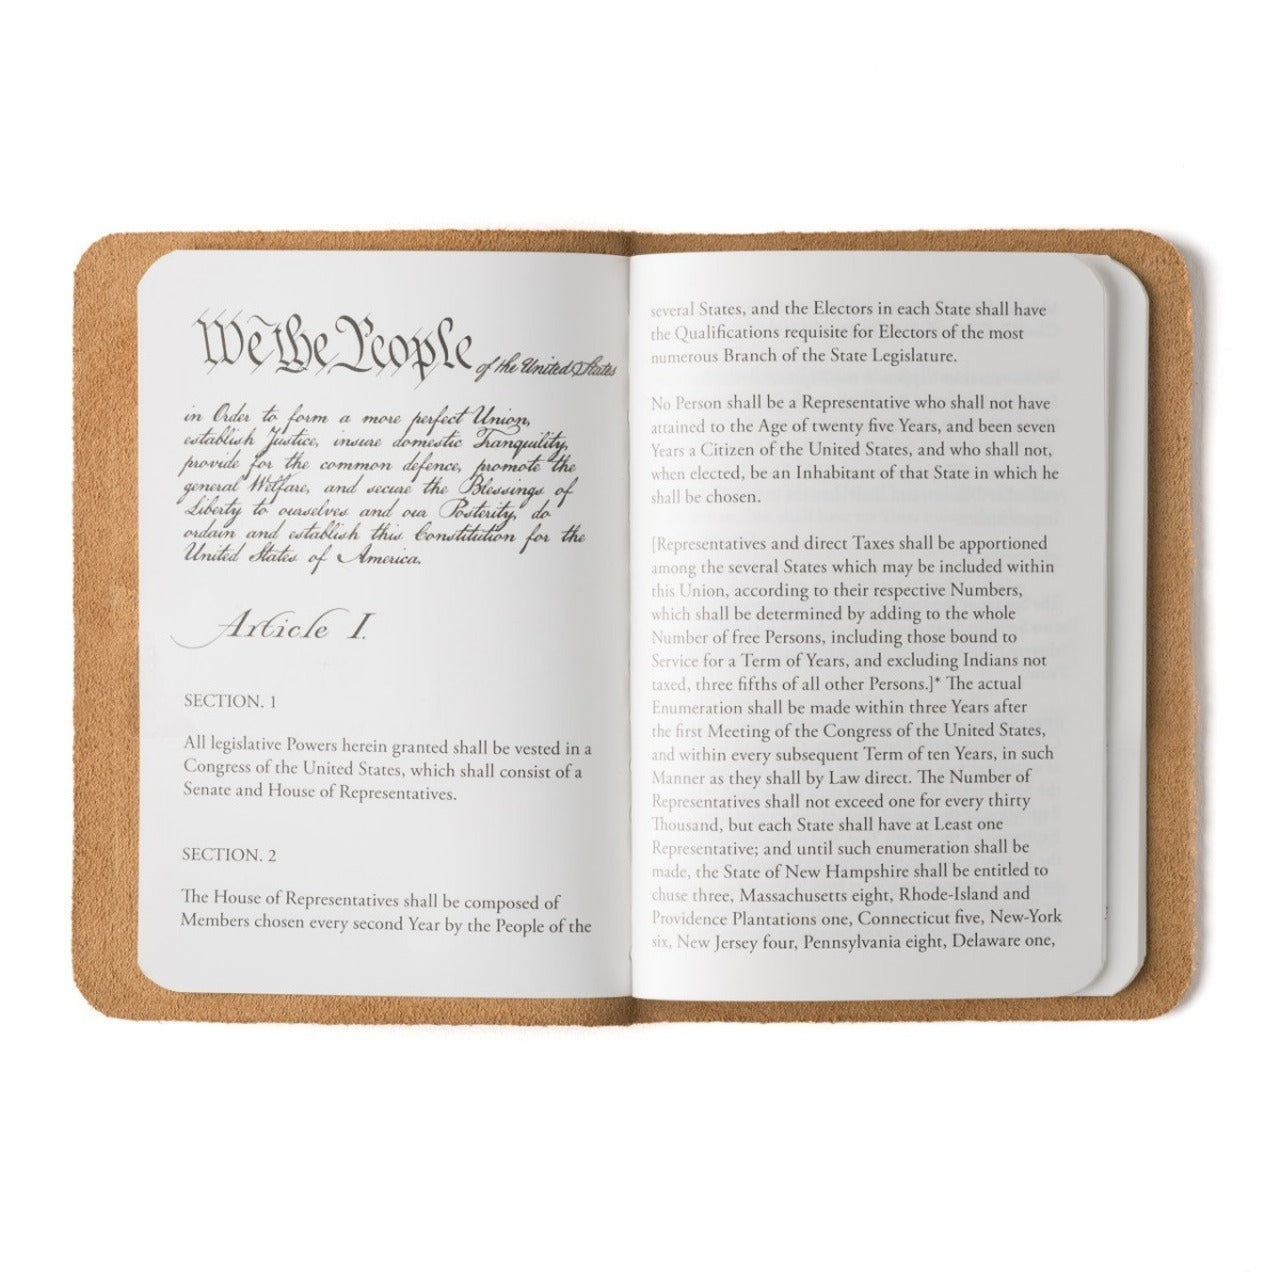 We the People of the United States
in Order to form a more perfect Union,
establish Justice, insure domestic Tranquility,
provide for the common defence, promote the
general Welfare, and secure the Blessings of
Liberty to ourselves and our Posterity, do
ordain and establish this Constitution for the
United States of America.
Article I.
SECTION. 1
All legislative Powers herein granted shall be vested in a
Congress of the United States, which shall consist of a
Senate and House of Representatives.
SECTION. 2
The House of Representatives shall be composed of
Members chosen every second Year by the People of the
several States, and the Electors in each State shall have
the Qualifications requisite for Electors of the most
numerous Branch of the State Legislature.
No Person shall be a Representative who shall not have
attained to the Age of twenty five Years, and been seven
Years a Citizen of the United States, and who shall not,
when elected, be an Inhabitant of that State in which he
shall be chosen.
[Representatives and direct Taxes shall be apportioned
among the several States which may be included within
this Union, according to their respective Numbers,
which shall be determined by adding to the whole
Number of free Persons, including those bound to
Service for a Term of Years, and excluding Indians not
taxed, three fifths of all other Persons.]* The actual
Enumeration shall be made within three Years after
the first Meeting of the Congress of the United States,
and within every subsequent Term of ten Years, in such
Manner as they shall by Law direct. The Number of
Representatives shall not exceed one for every thirty
Thousand, but each State shall have at Least one
Representative; and until such enumeration shall be
made, the State of New Hampshire shall be entitled to
chuse three, Massachusetts eight, Rhode-Island and
Providence Plantations one, Connecticut five, New-York
six, New Jersey four, Pennsylvania eight, Delaware one,